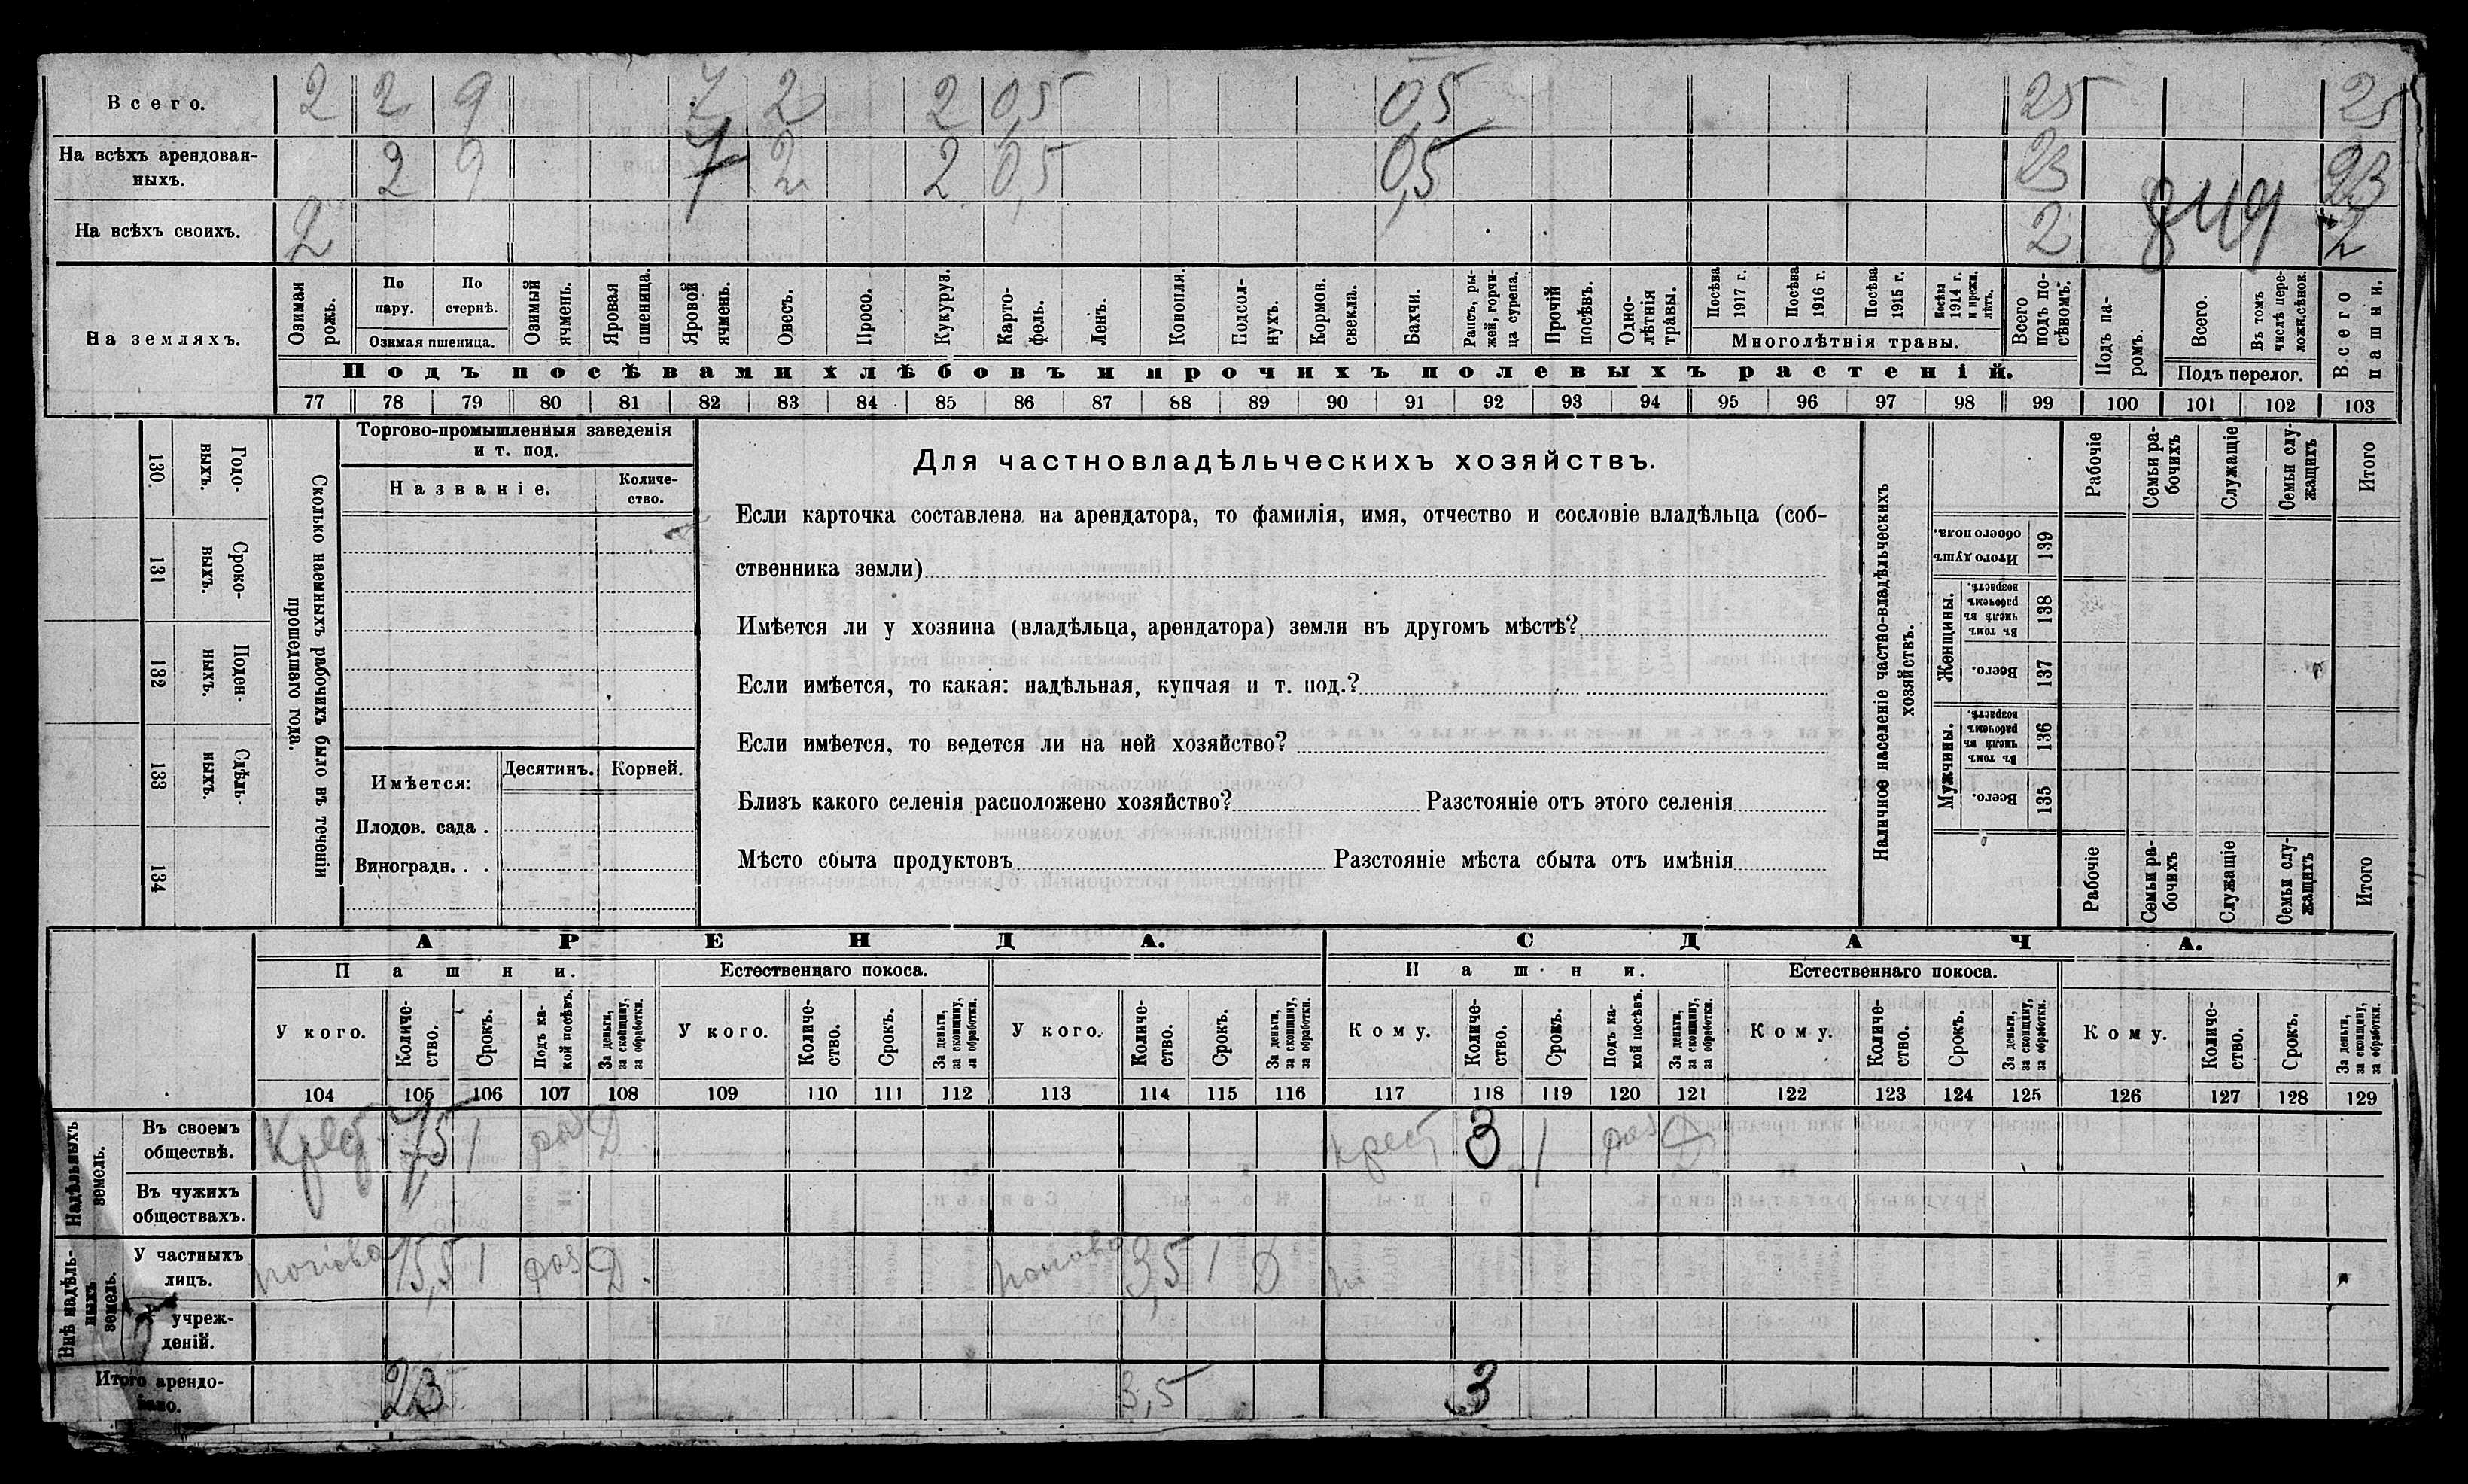 Всего. 2 2 9 7 2 2 0,5 0,5 25 25
На всѣхъ арендован-
ныхъ. 2 9 7 2 2 0,5 0,5 23 23
На всѣхъ своихъ. 2 2 849 2
На земляхъ.
Озимая рожь.
По пару.
По стернѣ.
Озимая пшеница.
Озимый ячмень.
Яровая пшеница.
Яровой ячмень.
Овесъ.
Просо.
Кукуруз.
Карто-
фель.
Ленъ.
Конопля.
Подсол-
нухъ.
Кормов. свекла.
Бахчи.
Рапсъ, ры-
жей, горчи-
ца сурепа.
Прочій посѣвъ.
Одно-
лѣтнія травы.
Посѣва 1917 г.
Посѣва 1916 г.
Посѣва 1915 г.
Посѣва 1914 г. и прежн. лѣтъ.
Многолѣтнія травы.
Всего подъ по-
сѣвомъ.
Подъ па-
ромъ.
Всего.
Въ томъ числѣ пере-
ложн. сѣнок.
Подъ перелог.
Всего пашни.
Подъ посѣвами хлѣбовъ и прочихъ полевыхъ растеній.
77 78 79 80 81 82 83 84 85 86 87 88 89 90 91 92 93 94 95 96 97 98 99 100 101 102 103
130. Годо-
выхъ.
131 Сроко-
выхъ.
132 Поден-
ныхъ.
133 Сдѣль-
ныхъ.
134
Сколько наемныхъ рабочихъ было въ теченіи
прошедшаго года.
Торгово-промышленныя заведенія
и т. под.
Названіе.
Количе-
ство.
Имѣется:
Десятинъ. Корней.
Плодов. сада .
Виноградн. . .
Для частновладѣльческихъ хозяйствъ.
Если карточка составлена на арендатора, то фамилія, имя, отчество и сословіе владѣльца (соб-
ственника земли)
Имѣется ли у хозяина (владѣльца, арендатора) земля въ другомъ мѣстѣ?
Если имѣется, то какая: надѣльная, купчая и т. под.?
Если имѣется, то ведется ли на ней хозяйство?
Близъ какого селенія расположено хозяйство? Разстояніе отъ этого селенія
Мѣсто сбыта продуктовъ Разстояніе мѣста сбыта отъ имѣнія
Наличное населеніе частно-владѣльческихъ
хозяйствъ.
Рабочіе
Семьи ра-
бочихъ
Служащіе
Семьи слу-
жащихъ
Итого
Итого душъ обоего пола. 139
Женщины.
Въ томъ числѣ въ рабочемъ возрастѣ. 138
Всего. 137
Мужчины.
Въ томъ числѣ въ рабочемъ возрастѣ. 136
Всего. 135
Рабочіе
Семьи ра-
бочихъ
Служащіе
Семьи слу-
жащихъ
Итого
АРЕНДА. СДАЧА.
Пашни. Естественнаго покоса. Пашни. Естественнаго покоса.
У кого.
Количе-
ство.
Срокъ.
Подъ ка-
кой посѣвъ.
За деньги, за скопщину, за обработки.
У кого.
Количе-
ство.
Срокъ.
За деньги, за скопщину, за обработки.
У кого.
Количе-
ство.
Срокъ.
За деньги, за скопщину, за обработки.
Кому.
Количе-
ство.
Срокъ.
Подъ ка-
кой посѣвъ.
За деньги, за скопщину, за обработки.
Кому.
Количе-
ство.
Срокъ.
За деньги, за скопщину, за обработки.
Кому.
Количе-
ство.
Срокъ.
За деньги, за скопщину, за обработки.
104 105 106 107 108 109 110 111 112 113 114 115 116 117 118 119 120 121 122 123 124 125 126 127 128 129
Надѣльныхъ
земель.
Въ своемъ
обществѣ. Крест 7,5 1 раз Д. крест 3 1 раз Д
Въ чужихъ
обществахъ.
Внѣ надѣль-
ныхъ
земель.
У частныхъ
лицъ. 15,5 1 раз Д. 3,5 1 Д
учреж-
деній.
Итого арендо-
вано. 23 3,5 3